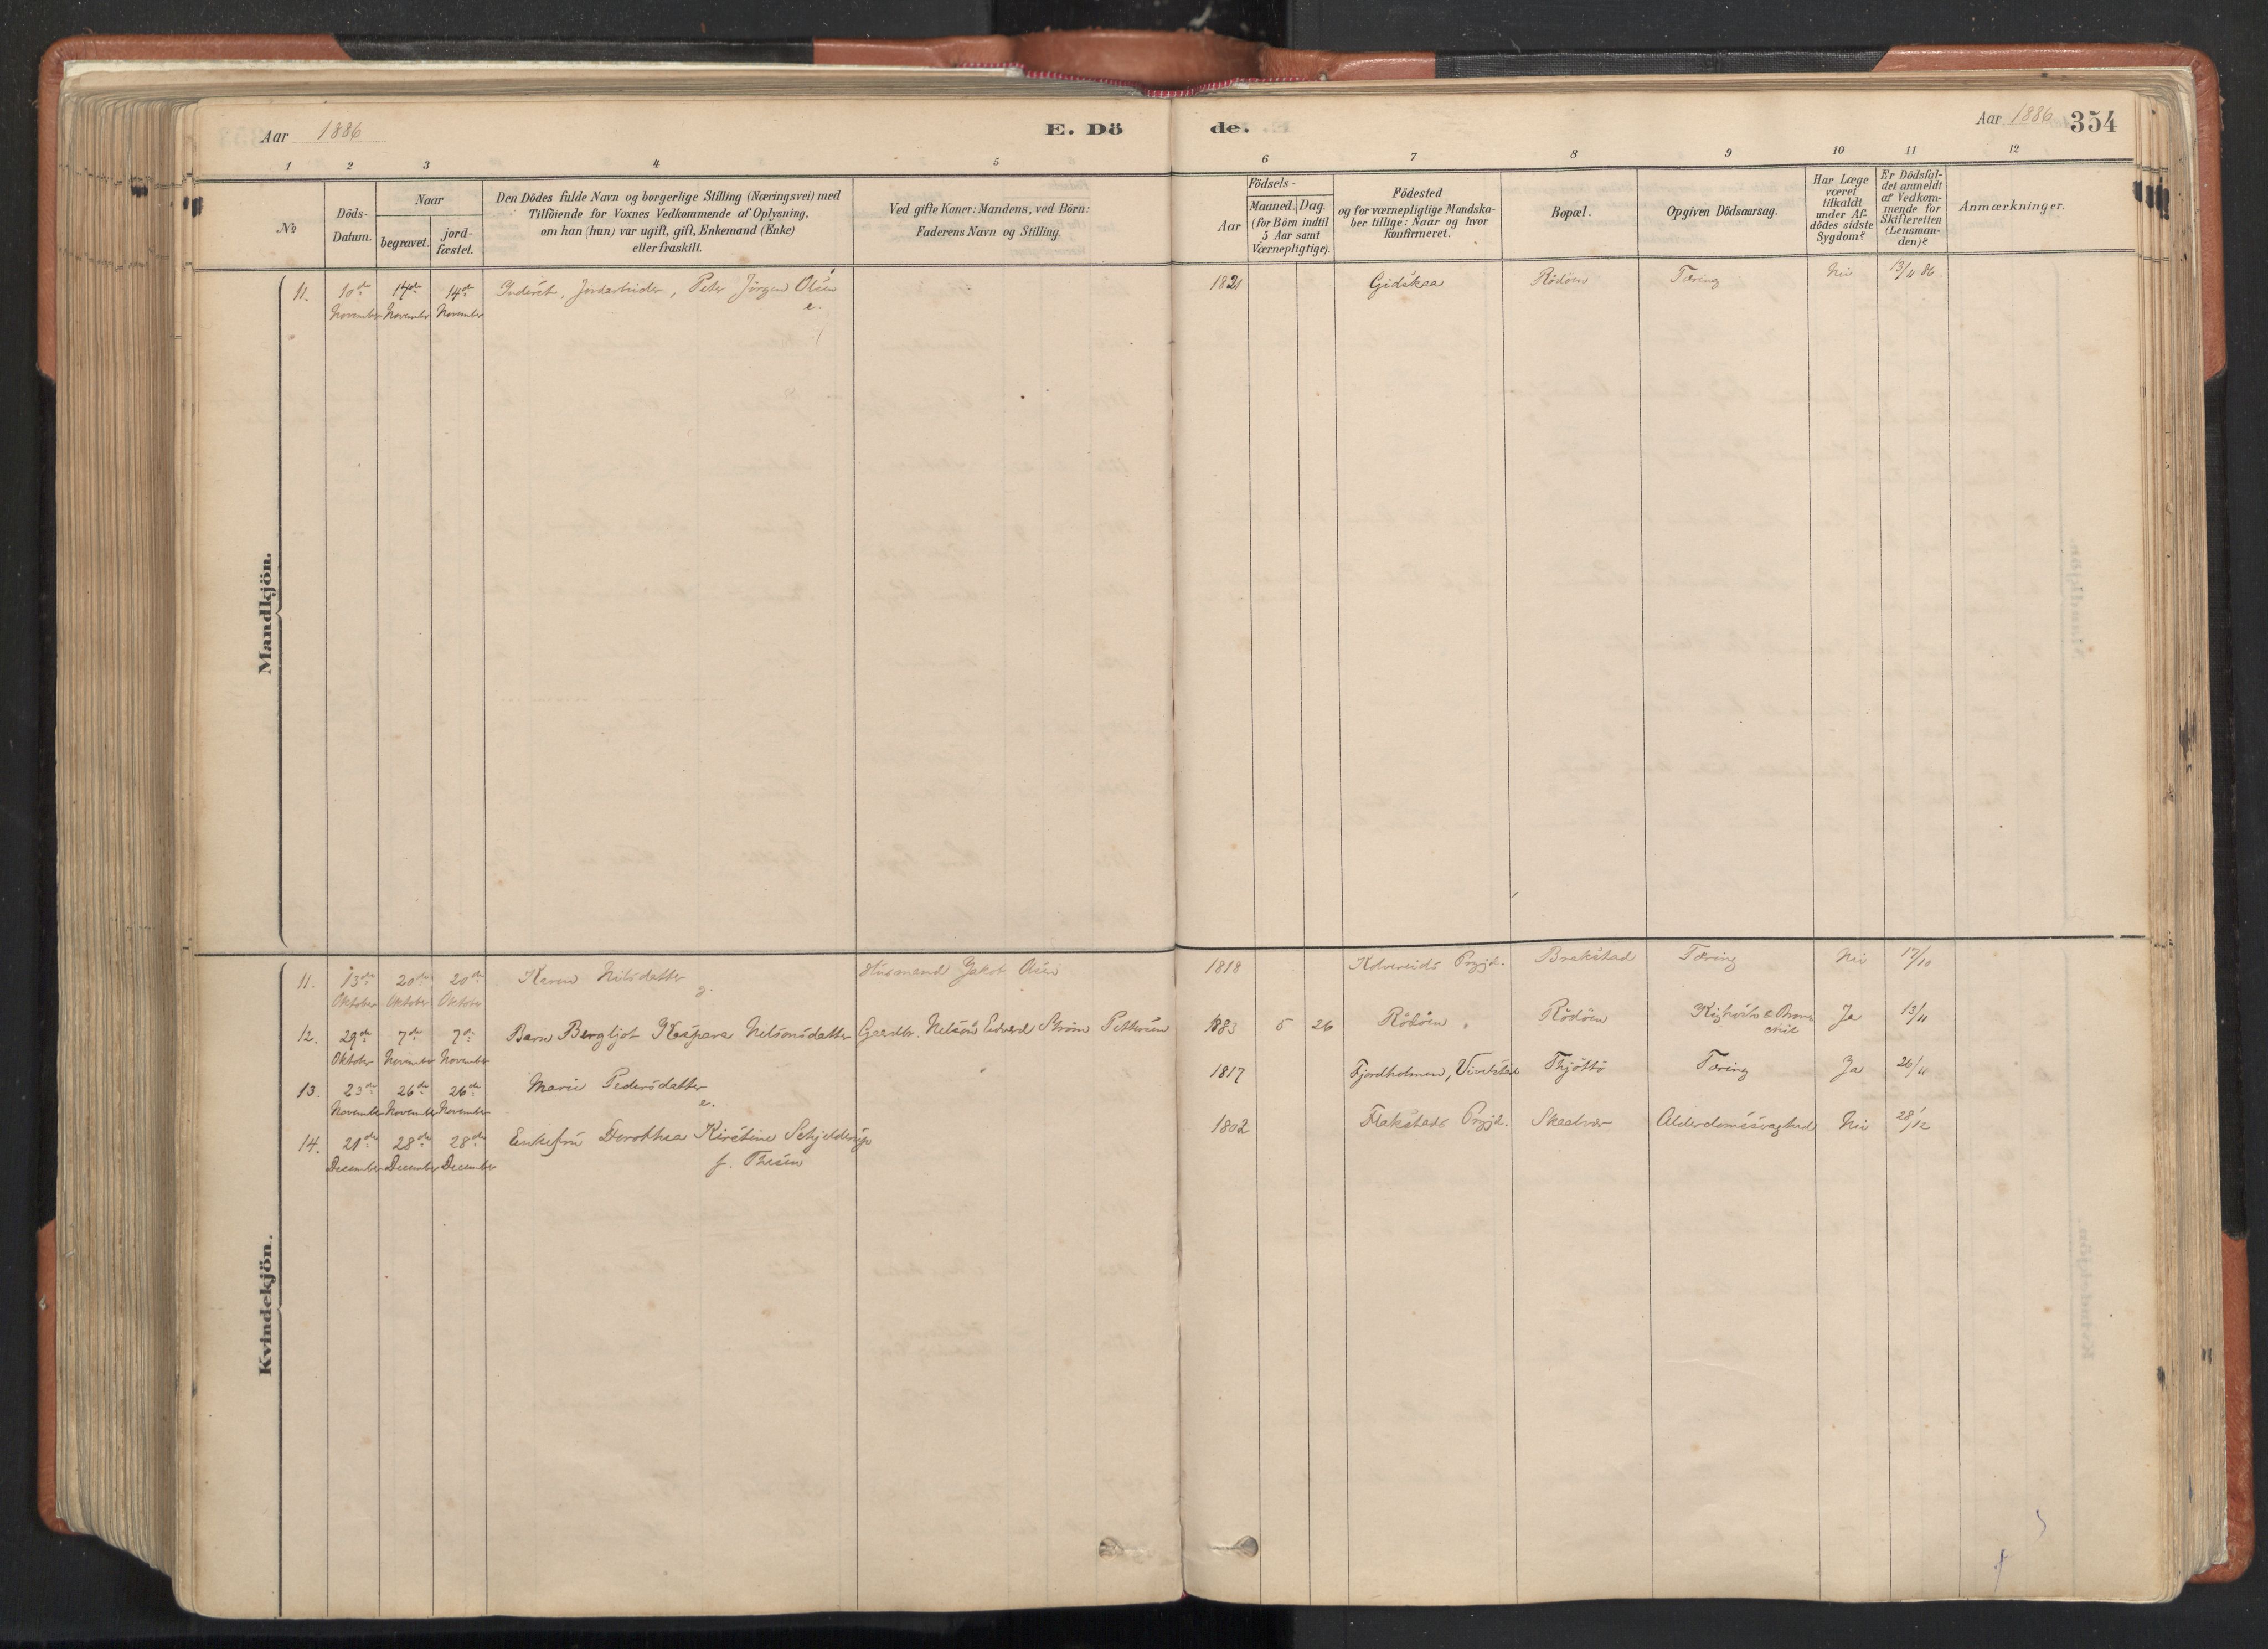 Aar 1886
E. Dö
de.
Aar 1886 354
1 2 3 4 5 6 7 8 9 10 11 12
No
Döds-
Datum.
Naar
begravet.
jord-
fæstet.
Den Dödes fulde Navn og borgerlige Stilling (Næringsvei) med
Tilföiende for Voxnes Vedkommende af Oplysning,
om han (hun) var ugift, gift, Enkemand (Enke)
eller fraskilt.
Ved gifte Koner: Mandens, ved Börn:
Faderens Navn og Stilling.
Födsels-
Aar
Maaned. Dag.
(for Börn indtil
5 Aar samt
Værnepligtige).
Födested
og for værnepligtige Mandska-
ber tillige: Naar og hvor
konfirmeret.
Bopæl.
Opgiven Dödsaarsag.
Har Læge
været
tilkaldt
under Af-
dödes sidste
Sygdom?
Er Dödsfal-
det anmeldt
af Vedkom-
mende for
Skifteretten
(Lensman-
den)?
Anmærkninger.
Mandkjön.
11. 10de 14de 14de Inderst, Jordarbeider, Peter Jörgen Olsen 1821 Gidskaa Rödöen Tæring Nei 13/11 86.
November November November e.
Kvindekjön.
11. 13de 20de 20de Karen Nilsdatter Husmand Jakob Olsen 1818 Kolvereids Prgjd. Brakstad Tæring Nei 17/10
Oktober Oktober Oktober g.
12. 29de 7de 7de Barn Bergljot Kaspara Nelsonsdatter Gaardbr. Nelson Edvard Ström Pettersen 1883 5 26 Rödöen Rödöen Kighoste & Bron Ja 13/11
Oktober November November
13. 23de 26de 26de Marie Pedersdatter 1817 Fjordholmen, Vivelstad Thjöttö Tæring Ja 26/11
November November November e.
14. 21de 28de 28de Enkefru Dorothea Kirstine Schjelderup 1802 Flakstads Prgjd. Skaalvær Alderdomssvaghed Nei 28/12
December December December f. Thesen